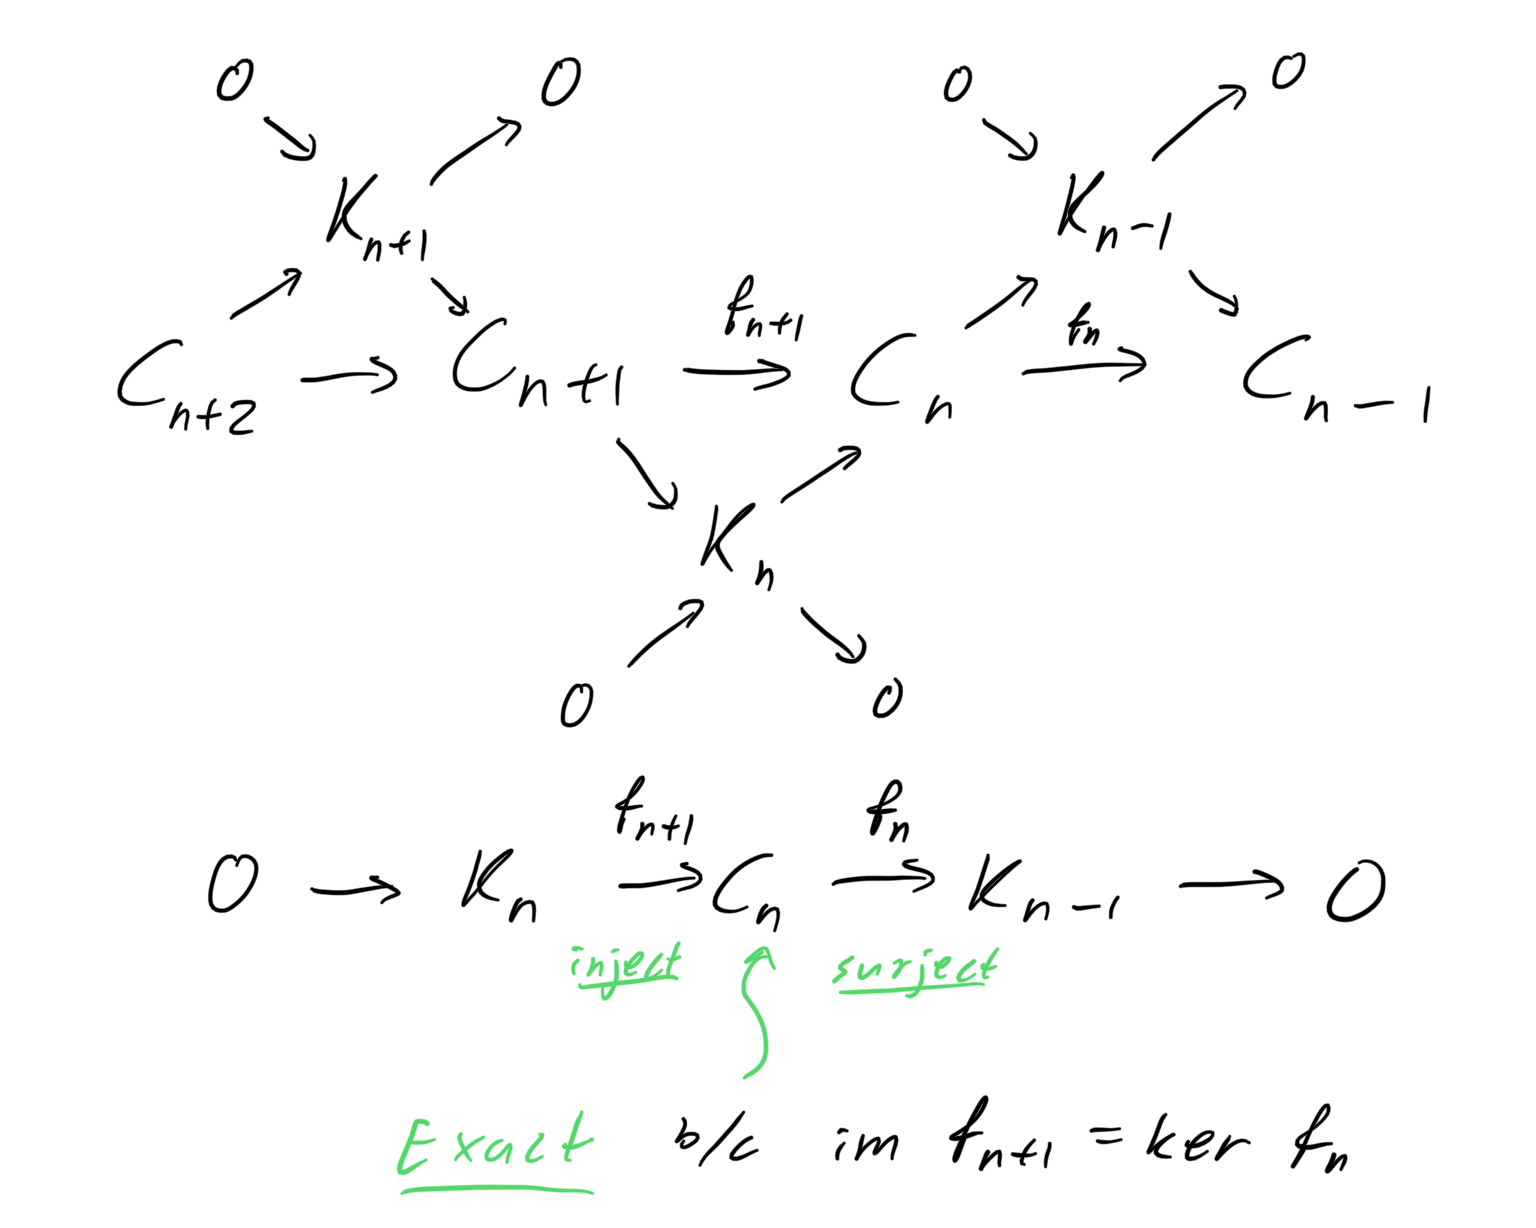 0 ↘ ↗ 0 0 ↘ ↗ 0
K_{n+1} K_{n-1}
↗ ↘ f_{n+1} ↗ f_n ↘
C_{n+2} → C_{n+1} → C_n → C_{n-1}
↘ ↗
K_n
↗ ↘
0 0
f_{n+1} f_n
0 → K_n → C_n → K_{n-1} → 0
inject surject
Exact b/c im f_{n+1} = ker f_n